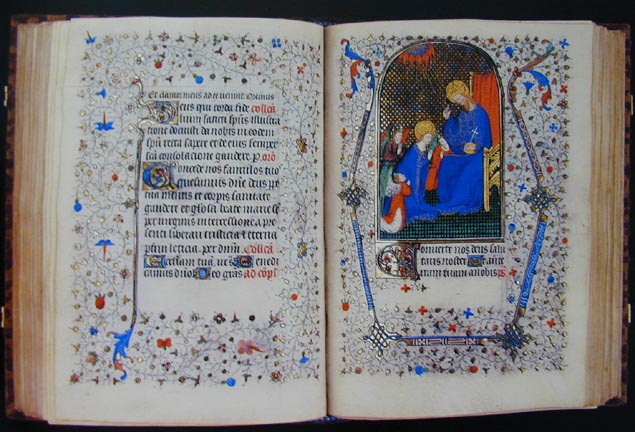 Et clamor meus ad te veniat. Oremus
Deus qui corda fide collcā
lium sancti spūs illustra
tione docuisti da nobis in eodem
spū recta sapere et de eius semper
scā consolacione gaudere. p. oro
Concede nos famulos tuos
quesumus dñe deus
mentis et corporis sanitate
gaudere et gloriosa beate marie
virginis intercessione a pre
senti liberari tristicia et eterna
pfrui leticia. per dnm. Collcā
Ecclesiam tuā Benedi
camus dño Deo grās ad copl
Converte nos deus salu
taris noster. Et aver
iram tuam a nobis ps